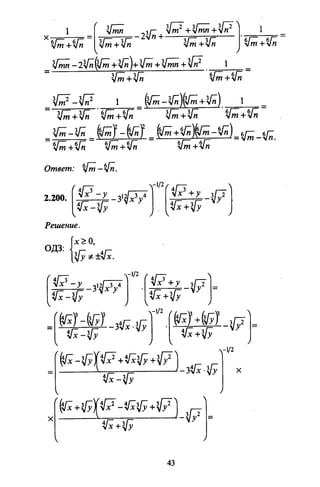 × 1/(⁶√m + ⁶√n) = (∛(mn)/(∛m + ∛n) − 2∛n + (∛(m²) + ∛(mn) + ∛(n²))/(∛m + ∛n)) · 1/(⁶√m + ⁶√n) =
= (∛(mn) − 2∛n(∛m + ∛n) + ∛(m²) + ∛(mn) + ∛(n²))/(∛m + ∛n) · 1/(⁶√m + ⁶√n) =
= (∛(m²) − ∛(n²))/(∛m + ∛n) · 1/(⁶√m + ⁶√n) = (∛m − ∛n)(∛m + ∛n)/(∛m + ∛n) · 1/(⁶√m + ⁶√n) =
= (∛m − ∛n)/(⁶√m + ⁶√n) = ((⁶√m)² − (⁶√n)²)/(⁶√m + ⁶√n) = (⁶√m + ⁶√n)(⁶√m − ⁶√n)/(⁶√m + ⁶√n) = ⁶√m − ⁶√n.
Ответ: ⁶√m − ⁶√n.
2.200. ((⁴√(x³) − y)/(⁴√x − ∛y) − 3¹²√(x³y⁴))^(−1/2) · ((⁴√(x³) + y)/(⁴√x + ∛y) − ∛(y²))
Решение.
ОДЗ: { x ≥ 0,
∛y ≠ ±⁴√x.
((⁴√(x³) − y)/(⁴√x − ∛y) − 3¹²√(x³y⁴))^(−1/2) · ((⁴√(x³) + y)/(⁴√x + ∛y) − ∛(y²)) =
= (((⁴√x)³ − (∛y)³)/(⁴√x − ∛y) − 3⁴√x · ∛y)^(−1/2) · (((⁴√x)³ + (∛y)³)/(⁴√x + ∛y) − ∛(y²)) =
= ((⁴√x − ∛y)(⁴√(x²) + ⁴√x∛y + ∛(y²))/(⁴√x − ∛y) − 3⁴√x · ∛y)^(−1/2) ×
× ((⁴√x + ∛y)(⁴√(x²) − ⁴√x∛y + ∛(y²))/(⁴√x + ∛y) − ∛(y²)) =
43